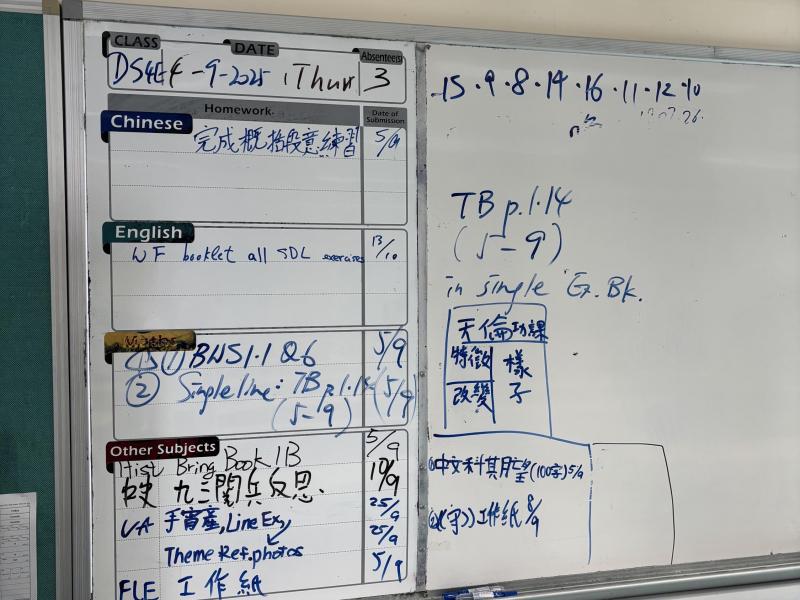 CLASS DATE Absentees
DS4E 4-9-2025 (Thur) 3
Homework Date of Submission
Chinese
完成概括段意練習 5/9
English
WF booklet all SDL exercises 13/10
Maths
① BNS1.1 Q6 5/9
② Single line: TB p.1.14 (5/9)
(5-9)
Other Subjects
Hist Bring Book 1B 5/9
中史 九三閱兵反思. 10/9
VA 手宵產, Line Ex, 25/9
Theme Ref. photos 25/9
FLE 工作紙 5/9
15·9·8·14·16·11·12·10
TB p.1.14
(5-9)
in single Ex. Bk.
天倫功課
特徵 樣
改變 子
①中文科其月望(100字)5/9
②《守》工作紙 8/9